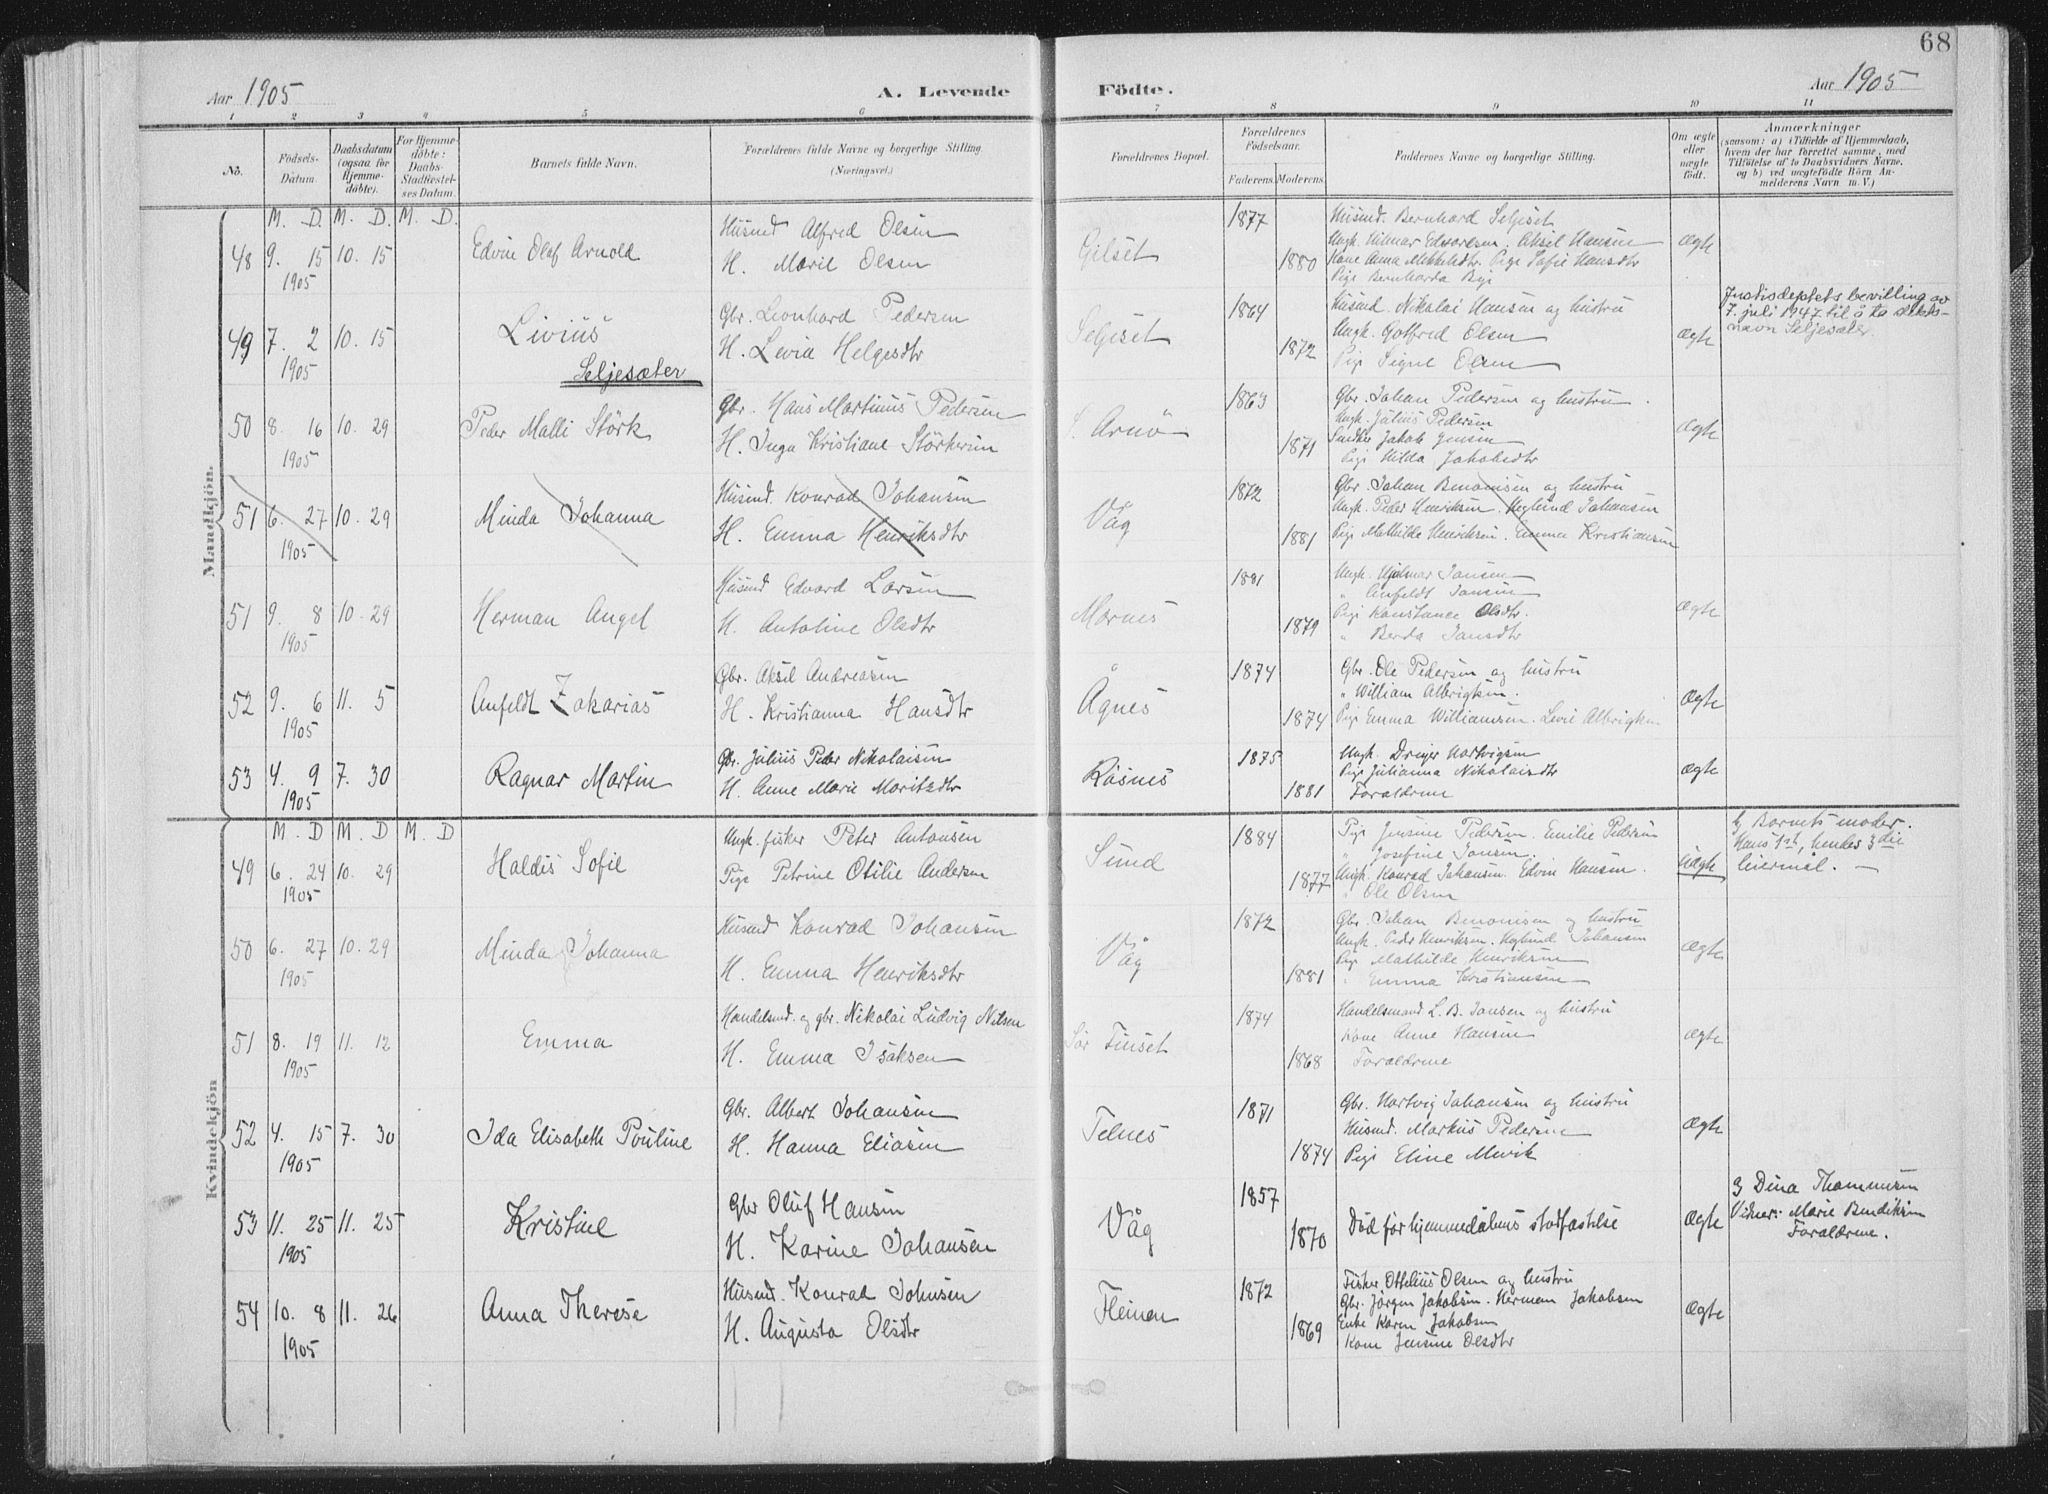 68
Aar 1905
A. Levende Födte.
Aar 1905
1 2 3 4 5 6 7 8 9 10 11
No.
Födsels-Datum.
Daabsdatum (ogsaa for Hjemme-döbte).
For Hjemme-döbte: Daabs-Stadfæstel-ses Datum.
Barnets fulde Navn.
Forældrenes fulde Navne og borgerlige Stilling (Næringsvei.)
Forældrenes Bopæl.
Forældrenes Födselsaar.
Faderens. Moderens.
Faddernes Navne og borgerlige Stilling.
Om ægte eller uægte födt.
Anmærkninger
(saasom: a) i Tilfælde af Hjemmedaab,
hvem der har forrettet samme, med
Tilföielse af to Daabsvidners Navne,
og b) ved uægtefödte Börn An-
melderens Navn m. V.)
Mandkjön.
M. D. M. D. M. D.
48 9. 15 1905 10. 15
Edvin Olaf Arnold
Husmd Alfred Olsen
H. Marie Olsen
Gilset
1877
1880
Husmd. Bernhard Seljeset
Ungk. Hilmar Edvardsen. Aksel Hansen
Kone Anna Mikkelsdtr. Pige Sofie Hansdtr
Pige Bernharda
Ægte
49 7. 2 1905 10. 15
Livius
Seljesæter
Gbr. Leonhard Pedersen
H. Levia Helgesdtr
Seljeset
1864
1872
Husmd. Nikolai Hansen og hustru
Ungk. Gotfred Olsen
Pige Signe Olsen
Ægte
Justisdeptets bevilling av
7. juli 1947 til å ta slekts-
navn Seljesæter.
50 8. 16 1905 10. 29
Peder Malli Störk
Gbr. Hans Martinus Pedersen
H. Inga Kristiane Störkersen
S. Arnö
1863
1871
Gbr. Johan Pedersen og hustru.
Ungk. Julius Pedersen
Jakob Jensen
Pige Hilda Jakobsdtr
Ægte
51 6. 27 1905 10. 29
Minda Johanna
Husmd. Konrad Johansen
H. Emma Henriksdtr
Våg
1872
1881
Gbr. Johan Benonisen og hustru
Ungk. Peder Henriksen. Heglund Johansen
Pige Mathilde Henriksen. Emma Kristiansen
51 9. 8 1905 10. 29
Herman Angel
Husmd Edvard Larsen
H. Antoline Olsdtr
Mornes
1881
1879
Ungk. Hjalmar Jansen
" Anfeldt Jansen
Pige Konstance Olsdtr.
" Berda Jansdtr
Ægte
52 9. 6 1905 11. 5
Anfeldt Zakarias
Gbr. Aksel Andreasen
H. Kristianna Hansdtr
Ågnes
1874
1874
Gbr. Ole Pedersen og hustru
" William Albrigtsen.
Pige Emma Williamsen. Levie Albrigtsen
Ægte
53 4. 9 1905 7. 30
Ragnar Martin
Gbr. Julius Peder Nikolaisen
H. Anne Marie Moritzdtr
Råsnes
1875
1881
Ungk. Dreyer Hartvigsen
Pige Julianna Nikolaisdtr
Forældrene
Ægte
Kvindekjön
M. D M. D M. D
49 6. 24 1905 10. 29
Haldis Sofie
Ungk. fisker Peter Antonsen
Pige Petrine Otilie Andersen
Sund
1884
1877
Pige Jensine Pedersen. Emilie Pedersen
" Josefine Jansen.
Ungk. Konrad Johansen. Edvin Hansen.
" Ole Olsen
Uægte
b) Barnets moder.
Hans 1st, hendes 3die
leiermål.
50 6. 27 1905 10. 29
Minda Johanna
Husmd Konrad Johansen
H. Emma Henriksdtr
Våg
1872
1881
Gbr. Johan Benonisen og hustru
Ungk. Peder Henriksen. Heglund Johansen
Pige Mathilde Henriksen
" Emma Kristiansen
Ægte
51 8. 19 1905 11. 12
Emma
Handelsmd. og gbr. Nikolai Ludvig Nilsen
H. Emma Isaksen
Sör Finset
1874
1868
Handelsmand L. B. Jansen og hustru
Kone Anne Hansen
Forældrene
Ægte
52 4. 15 1905 7. 30
Ida Elisabeth Pouline
Gbr. Albert Johansen
H. Hanna Eliasen
Telnes
1871
1874
Gbr. Hartvig Johansen og hustru
Husmd. Markus Pedersen
Pige Eline Mevik
Ægte
53 11. 25 1905 11. 25
Kristine
Gbr Oluf Hansen
H. Karine Johansen
Våg
1857
1870
Död för hjemmedåbens stadfæstelse
Ægte
Dina Thommesen
Vidner: Marie Bendiksen
Forældrene.
54 10. 8 1905 11. 26
Anna Therese
Husmd. Konrad Johnsen
H. Augusta Olsdtr
Fleinen
1872
1869
Fisker Ottelius Olsen og hustru
Gbr. Jörgen Jakobsen. Herman Jakobsen
Enke Karen Jakobsen
Kone Jensine Olsdtr
Ægte